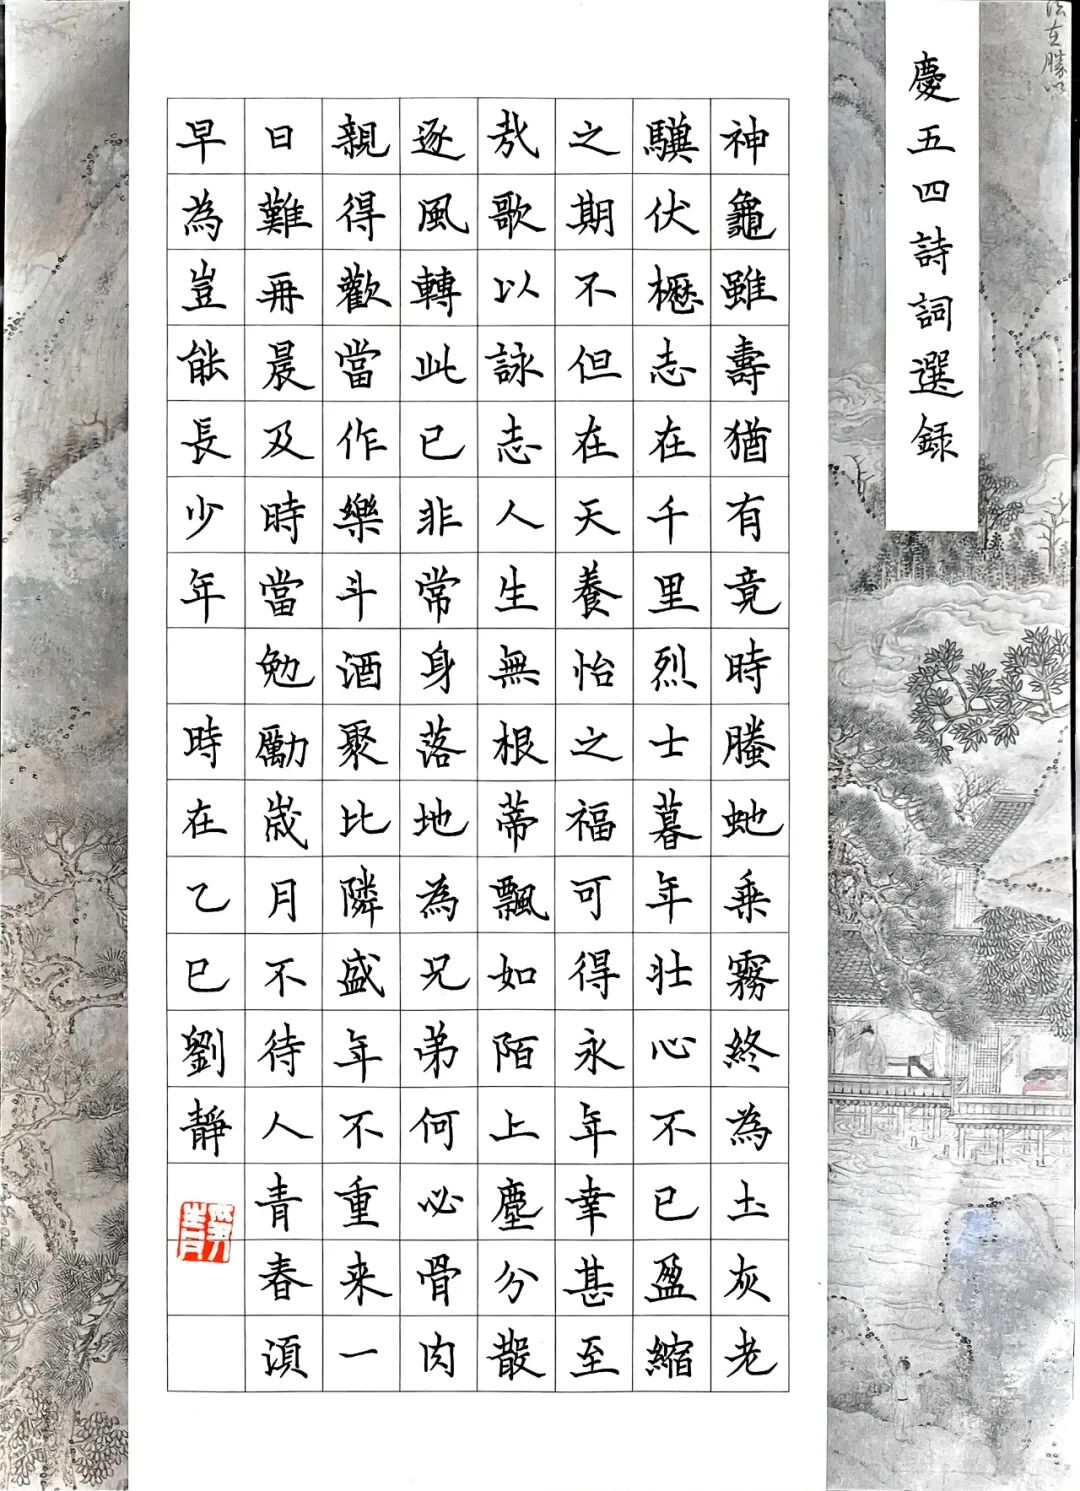 慶五四詩詞選録
神龜雖壽猶有竟時騰虵乗霧終為土灰老
驥伏櫪志在千里烈士暮年壯心不已盈縮
之期不但在天養怡之福可得永年幸甚至
哉歌以詠志人生無根蒂飄如陌上塵分散
逐風轉此已非常身落地為兄弟何必骨肉
親得歡當作樂斗酒聚比隣盛年不重来一
日難再晨及時當勉勵歲月不待人青春須
早為豈能長少年 時在乙巳劉靜